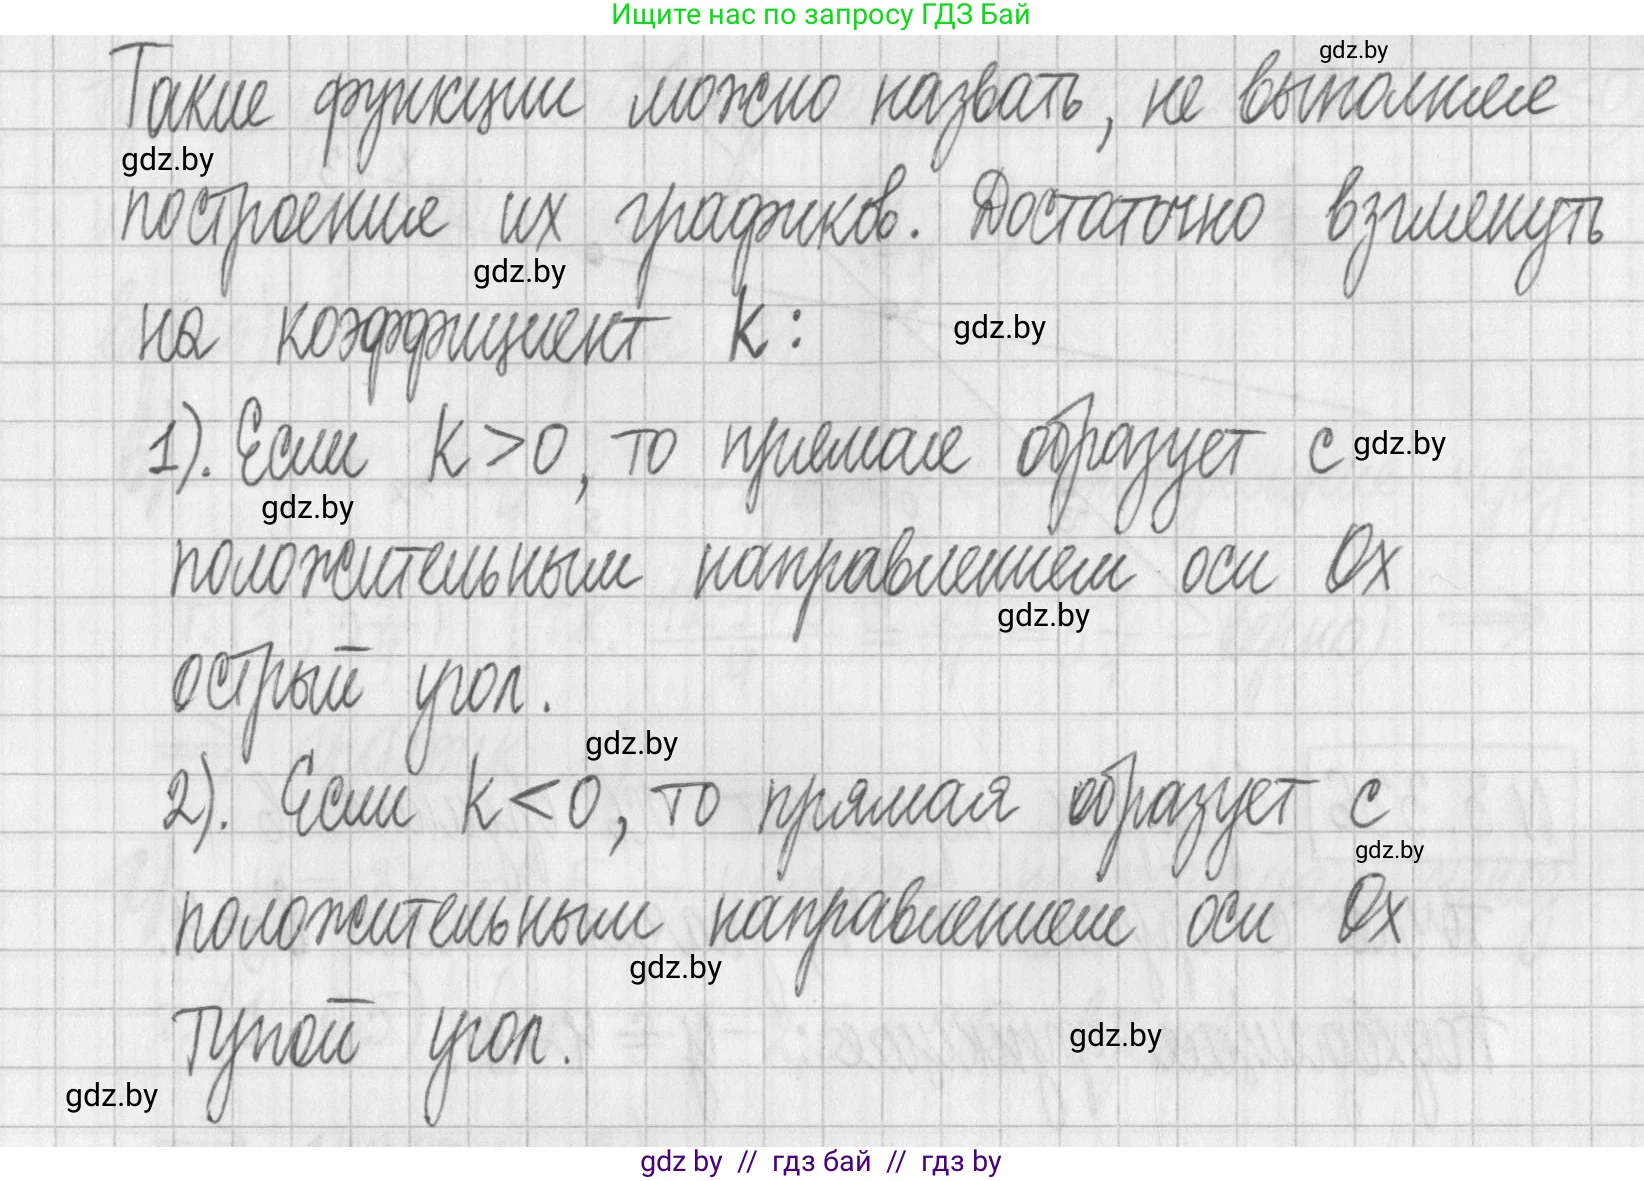 Ищите нас по запросу ГДЗ Бай
gdz.by
Такие функции можно назвать, не выполняя
gdz.by
построения их графиков. Достаточно взглянуть
gdz.by
на коэффициент k:
gdz.by
1). Если k > 0, то прямая образует с
gdz.by
gdz.by
положительным направлением оси Ox
gdz.by
острый угол.
gdz.by
2). Если k < 0, то прямая образует с
gdz.by
положительным направлением оси Ox
gdz.by
тупой угол.
gdz.by
gdz.by
gdz by // гдз бай // гдз by